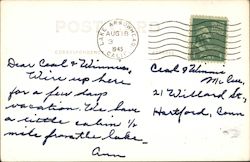 POST CARD
CORRESPONDENCE
LAKE ARROWHEAD
AUG 18
3
1945
CALIF.
Dear Ceal & Winnie,
We're up here
for a few days
vacation. We have
a little cabin 1/2
mile from the lake.
Ann
Ceal & Winnie
21 Willard St.
Hartford, Conn